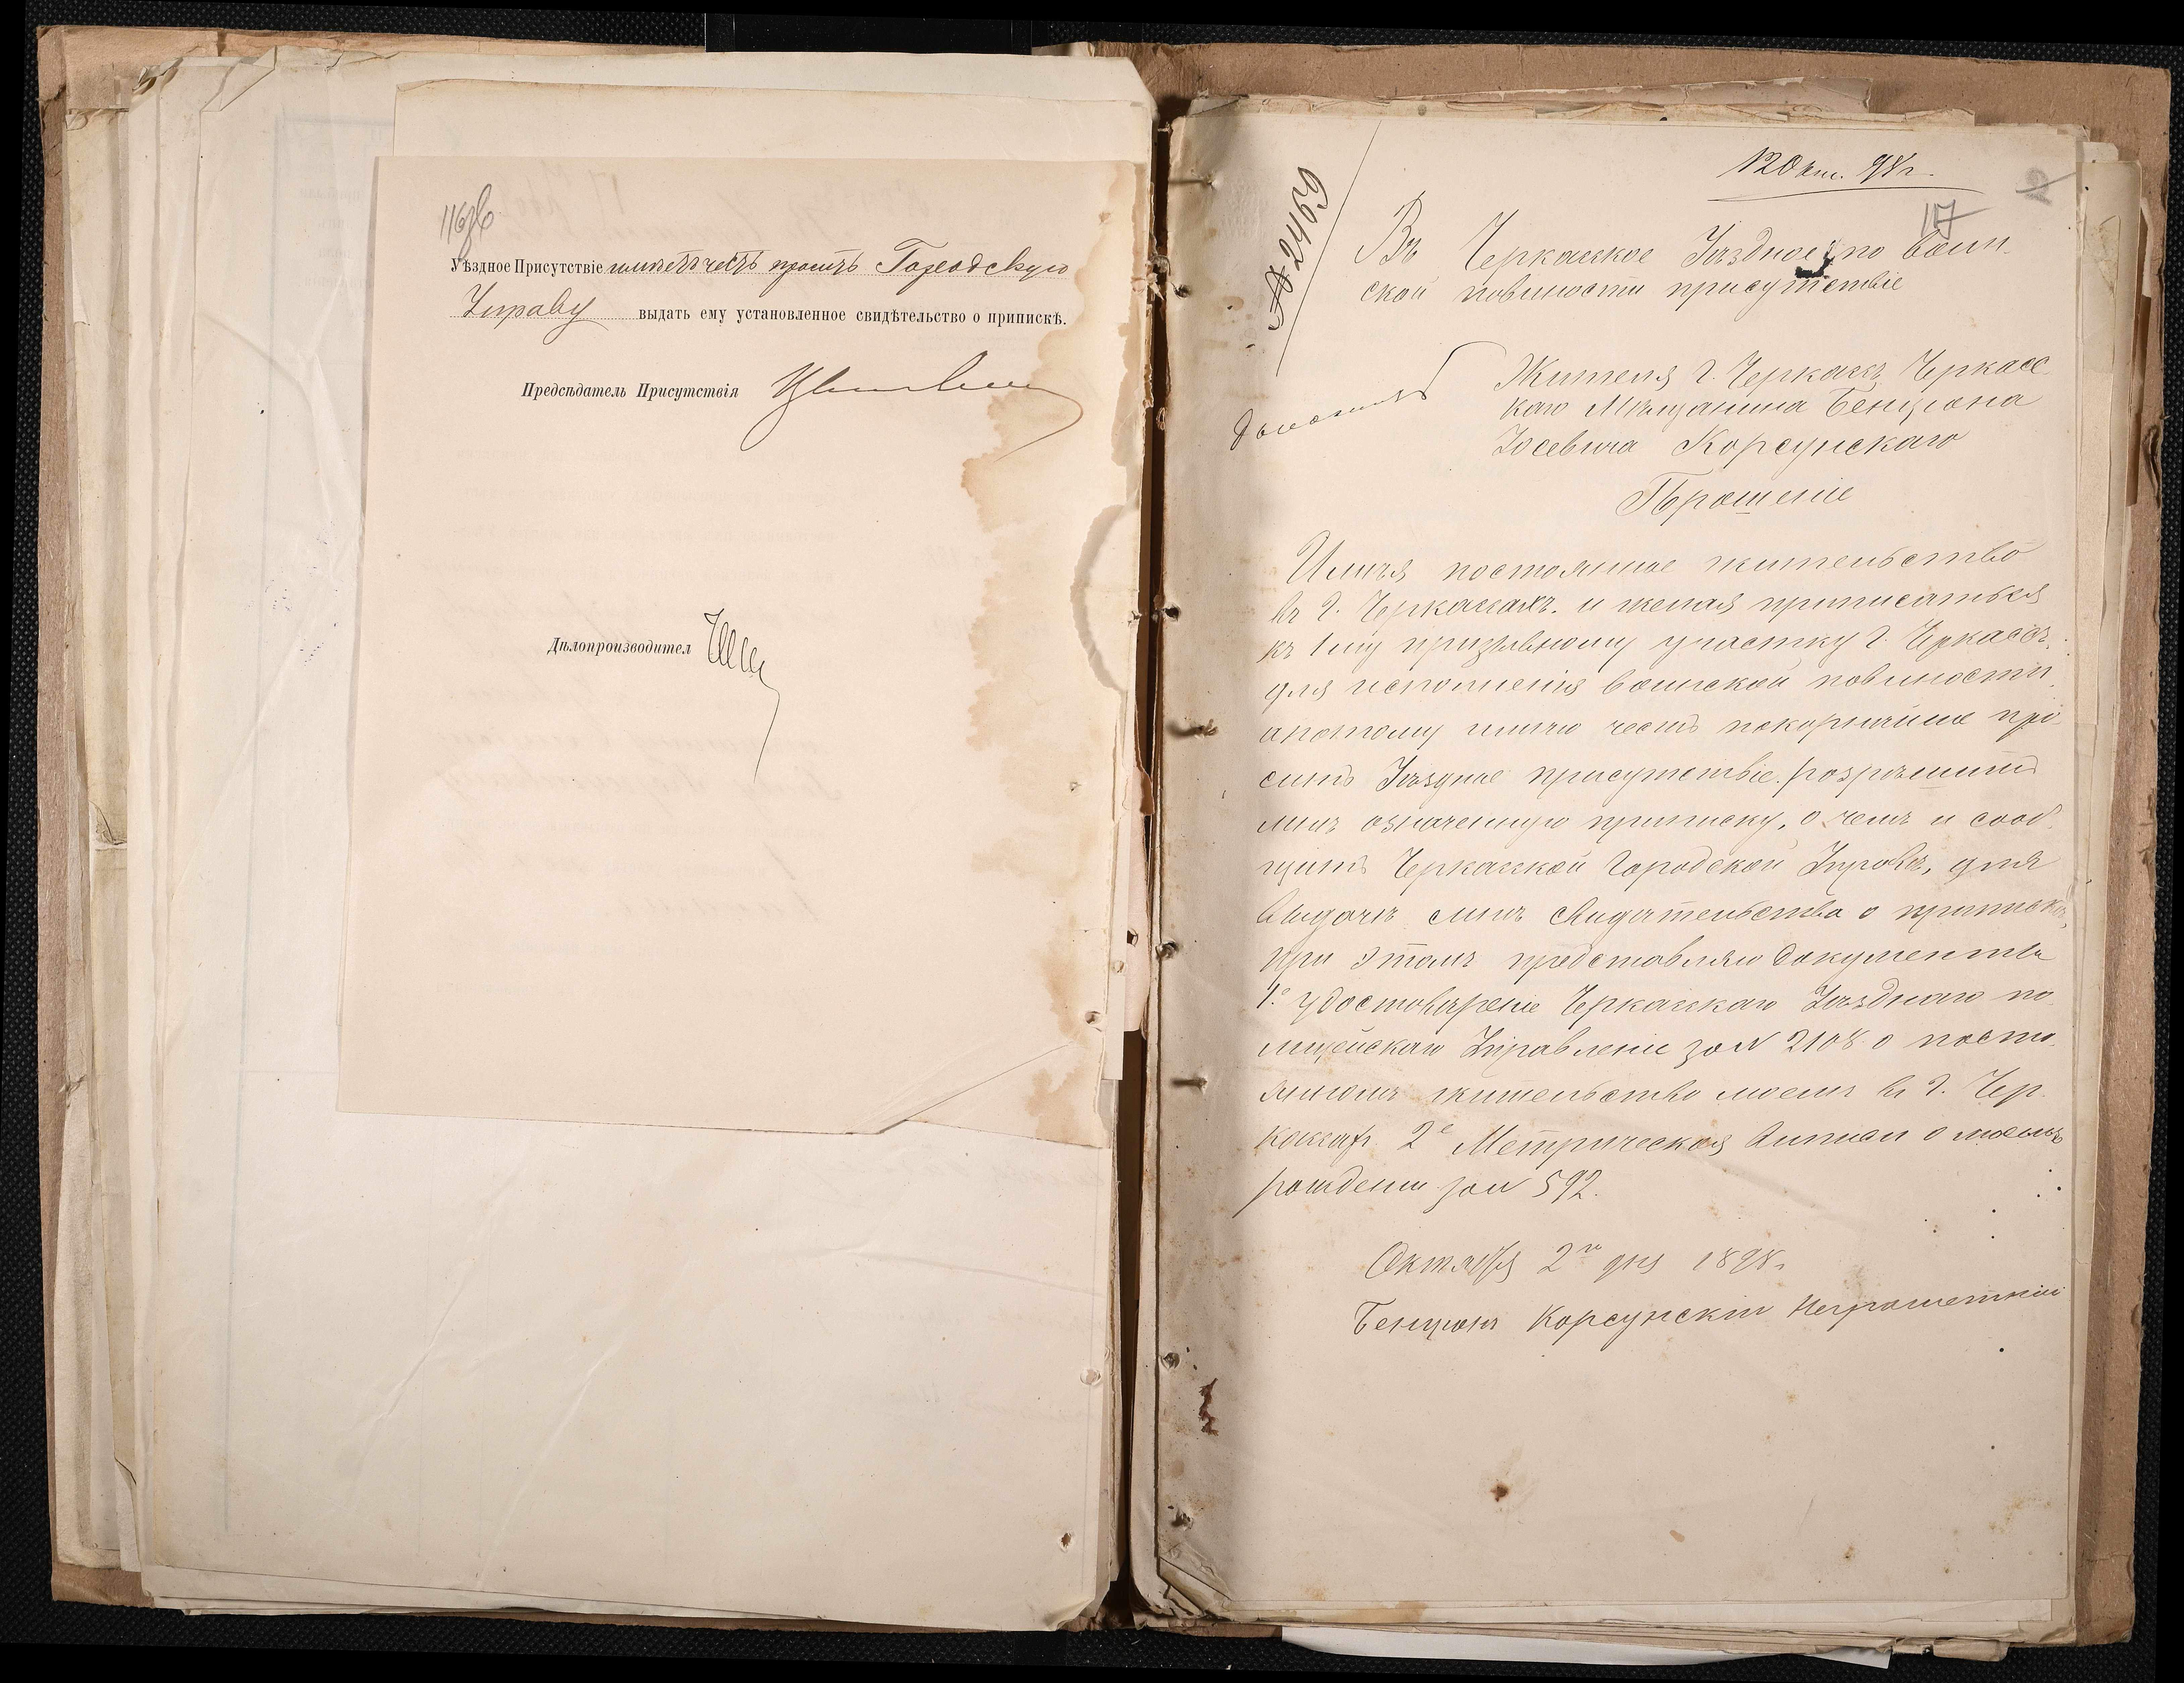 116об
Уѣздное Присутствіе имѣетъ честь просить Городскую
Управу выдать ему установленное свидѣтельство о припискѣ.
Предсѣдатель Присутствія
Дѣлопроизводител
12 Окт. 98 г.
117
№ 2469
Въ Черкасское Уѣздное по воин-
ской повиности присутствіе
Жителя г. Черкассъ Черкасс
каго Мѣщанина Бенціона
Іосевича Корсунскаго
Прошеніе
Имѣя постоянное жительство
въ г. Черкассахъ. и желая приписаться
къ 1му призывному участку г. Черкассъ.
для исполненія воинской повиности,
апотому имѣю честь покорнѣйше про
сить Уѣздное присутствіе. розрѣшить
мнѣ означенную приписку, о чемъ и сооб
щить Черкасской Городской Управѣ, для
выдачѣ мнѣ Свидѣтельства о припискѣ,
При этомъ представляю документы
1.е удостовѣреніе Черкасскаго Уѣзднаго по
лицейскаго Управленіе за № 2108 о посто
янномъ жительство моемъ въ г. Чер
кассахъ. 2е Метрическая выписи о моемъ
рождении за № 592.
Октября 2го дня 1898 г.
Бенціонъ Корсунскій Неграмотній